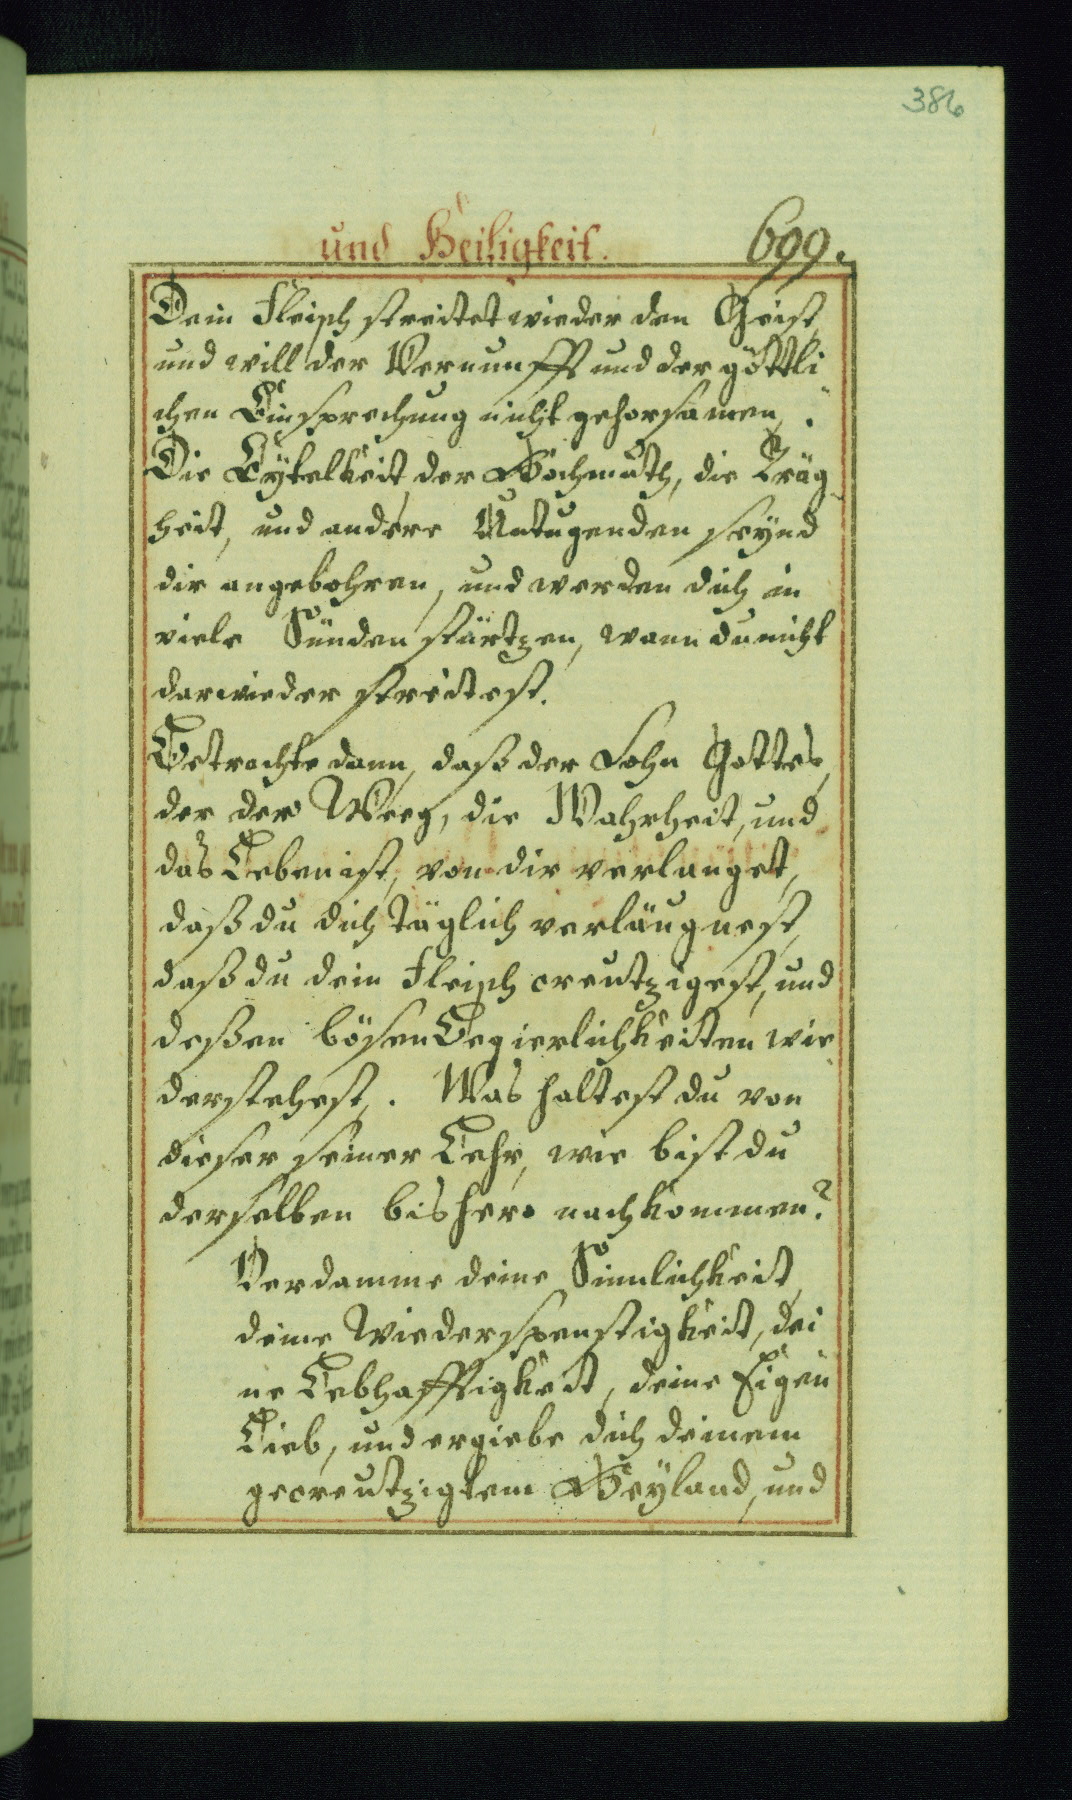 386
und Heiligkeit. 699.
Dein Fleisch streitet wieder den Geist,
und will der Vernunfft und der göttli
chen Einsprechung nicht gehorsamen.
Die Eÿtelkeit, der Hochmuth, die Träg
heit, und andere Untugenden seÿnd
dir angebohren, und werden dich in
viele Sünden stürtzen, wann du nicht
darwieder streitest.
Betrachte dann, daß der Sohn Gottes,
der der Weeg, die Wahrheit, und
das Leben ist, von dir verlanget,
daß du dich täglich verläugnest,
daß du dein Fleisch creutzigest, und
deßen bösen Begierlichkeiten wie
derstehest. Was haltest du von
dieser seiner Lehr, wie bist du
derselben bishero nachkommen?
Verdamme deine Sinnlichkeit,
deine Wiederspenstigkeit, dei
ne Lebhafftigkeit, deine Eigen
Lieb, und ergiebe dich deinem
gecreutzigtem Heÿland, und